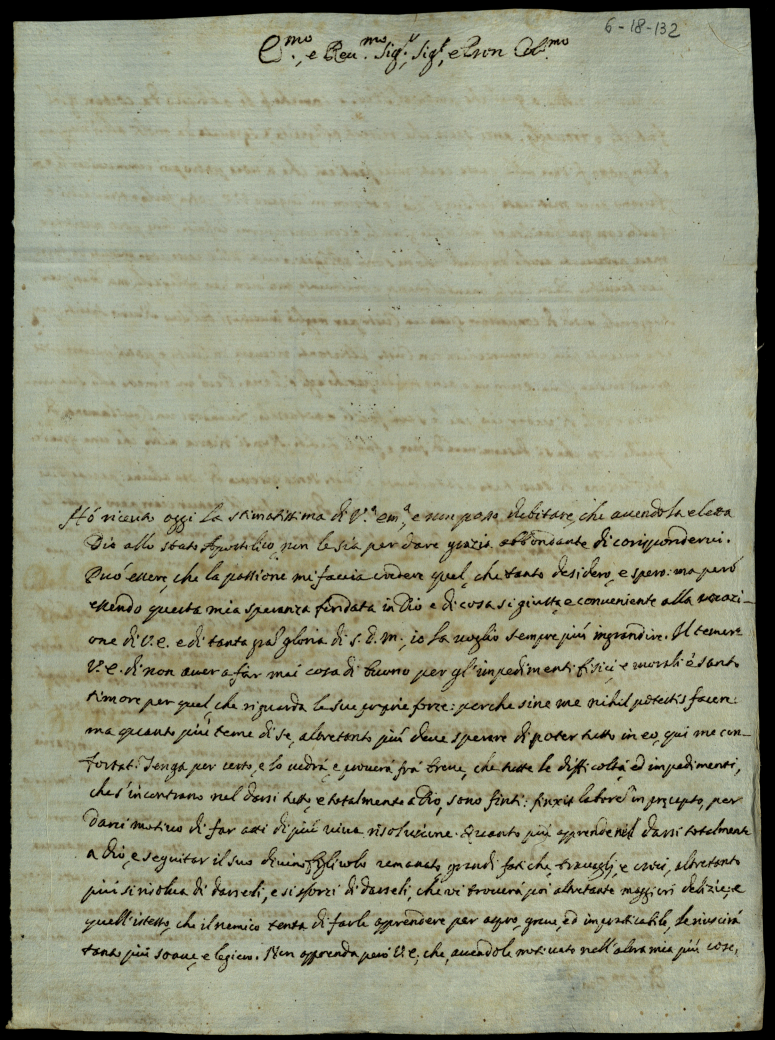 6-18-132
E.mo, e Reu.mo Sig.r, Sig.r, e Pron Col.mo
Hó riceuto oggi la stimatissima di V.a em.a, e non posso dubitare, che auendola eletta
Dio allo stato Apostolico, non le sia per dare grazia abbondante di corrisponderui.
Può essere, che la passione mi faccia credere quel, che tanto desidero, e spero: ma però
essendo questa mia speranza fondata in Dio e di cosa si giusta, e conueniente alla uocazi-
one di V.e. e di tanta gloria di S.D.M., io la uoglio sempre più ingrandire. Il temere
V.e. di non auer a far mai cosa di buono per gl'impedimenti fisici, e morali è santo
timore per quel, che riguarda le sue proprie forze: perche sine me nihil potestis facere:
ma quanto più teme di se, altretanto più deue sperare di poter tutto in eo, qui me con-
fortat. Tenga per certo, e lo uedrà, e prouerà frà breue, che tutte le difficoltà, ed impedimenti,
che s'incontrano nel darsi tutto, e totalmente a Dio, sono finti: finxit laborem in precepto, per
darci motiuo di far atti di più uiua risoluzione. Quanto più apprende nel darsi totalmente
a Dio, e seguitar il suo diuino figliuolo umanato, grandi fatiche, trauagli, e croci, altretanto
più si risolua di darseli, e si sforzi di darseli, che ui trouerà poi altretante maggiori delizie; e
quell'istesso, che il nemico tenta di farle apprendere per aspro, greue, ed impraticabile, le riuscirà
tanto più soaue, e legiero. Non apprenda però V.e., che, auendole motiuato nell'altra mia più cose,